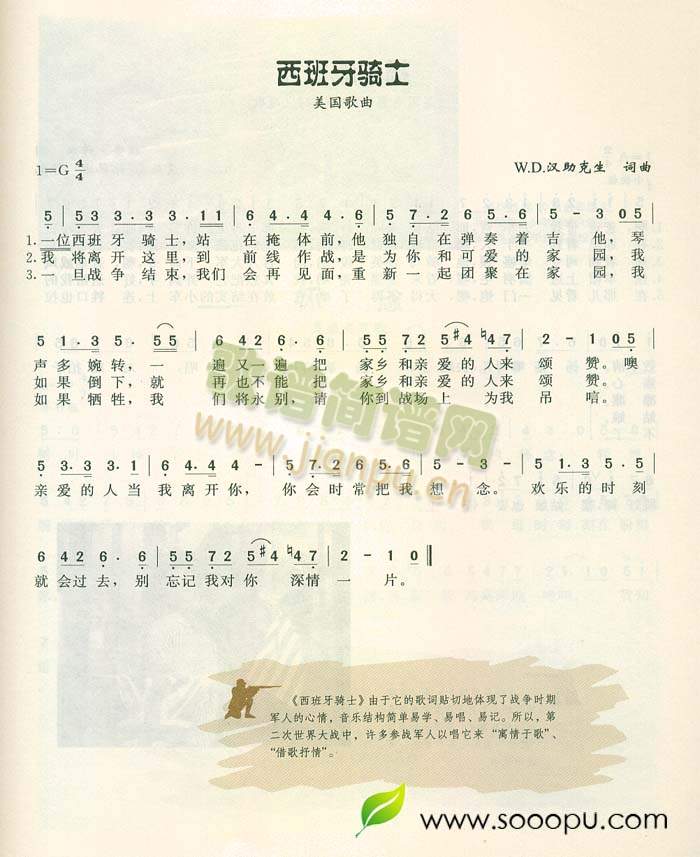 西班牙骑士
美国歌曲
1=G 4/4
W.D.汉助克生 词曲
5 | 53 3. 3 3. 11 | 6 4. 4 4. 6 | 5 7. 2 6. 5 | 5 - 3 05 |
1.一位西班牙 骑士,站 在掩体前,他 独自在弹奏着吉 他,琴
2.我 将离开 这里,到 前线作战,是 为你和可爱的家 园,我
3.一旦战争 结束,我们 会再见面,重 新一起团聚在家 园,我
5 1. 3 5. 55 | 6 42 6. 6 | 55 72 5#4 ♮47 | 2 - 105 |
声多婉转,一 遍又一遍 把 家乡和亲爱的人来 颂 赞。噢
如果 倒下,就 再也不能 把 家乡和亲爱的人来 颂 赞。
如果 牺牲,我 们将永别,请 你到战场上 为我 吊 唁。
5 3. 3 3. 1 | 6 64 4 - | 5 7. 2 6. 6 | 5 - 3 - | 5 1. 3 5. 5 |
亲爱的人当 我离开你, 你会时常把我 想 念。 欢乐的时刻
6 42 6. 6 | 55 72 5#4 ♮47 | 2 - 1 0 ‖
就会过去,别 忘记我对你 深情 一 片。
《西班牙骑士》由于它的歌词贴切地体现了战争时期
军人的心情,音乐结构简单易学、易唱、易记。所以,第
二次世界大战中,许多参战军人以唱它来“寓情于歌”、
“借歌抒情”。
歌谱简谱网
www.jianpu.cn
www.sooopu.com